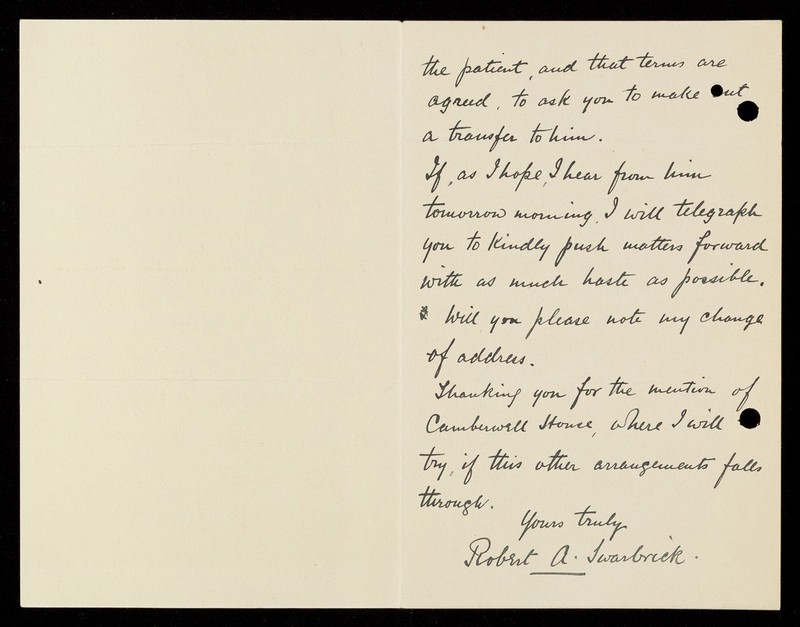 the patient, and that terms are
agreed, to ask you to make out
a transfer to him.
If, as I hope, I hear from him
tomorrow morning, I will telegraph
you to kindly push matters forward
with as much haste as possible.
Will you please note my change
of address.
Thanking you for the mention of
Camberwell House, where I will
try, if this other arrangements falls
through.
Yours truly
Robert A. Swarbrick.